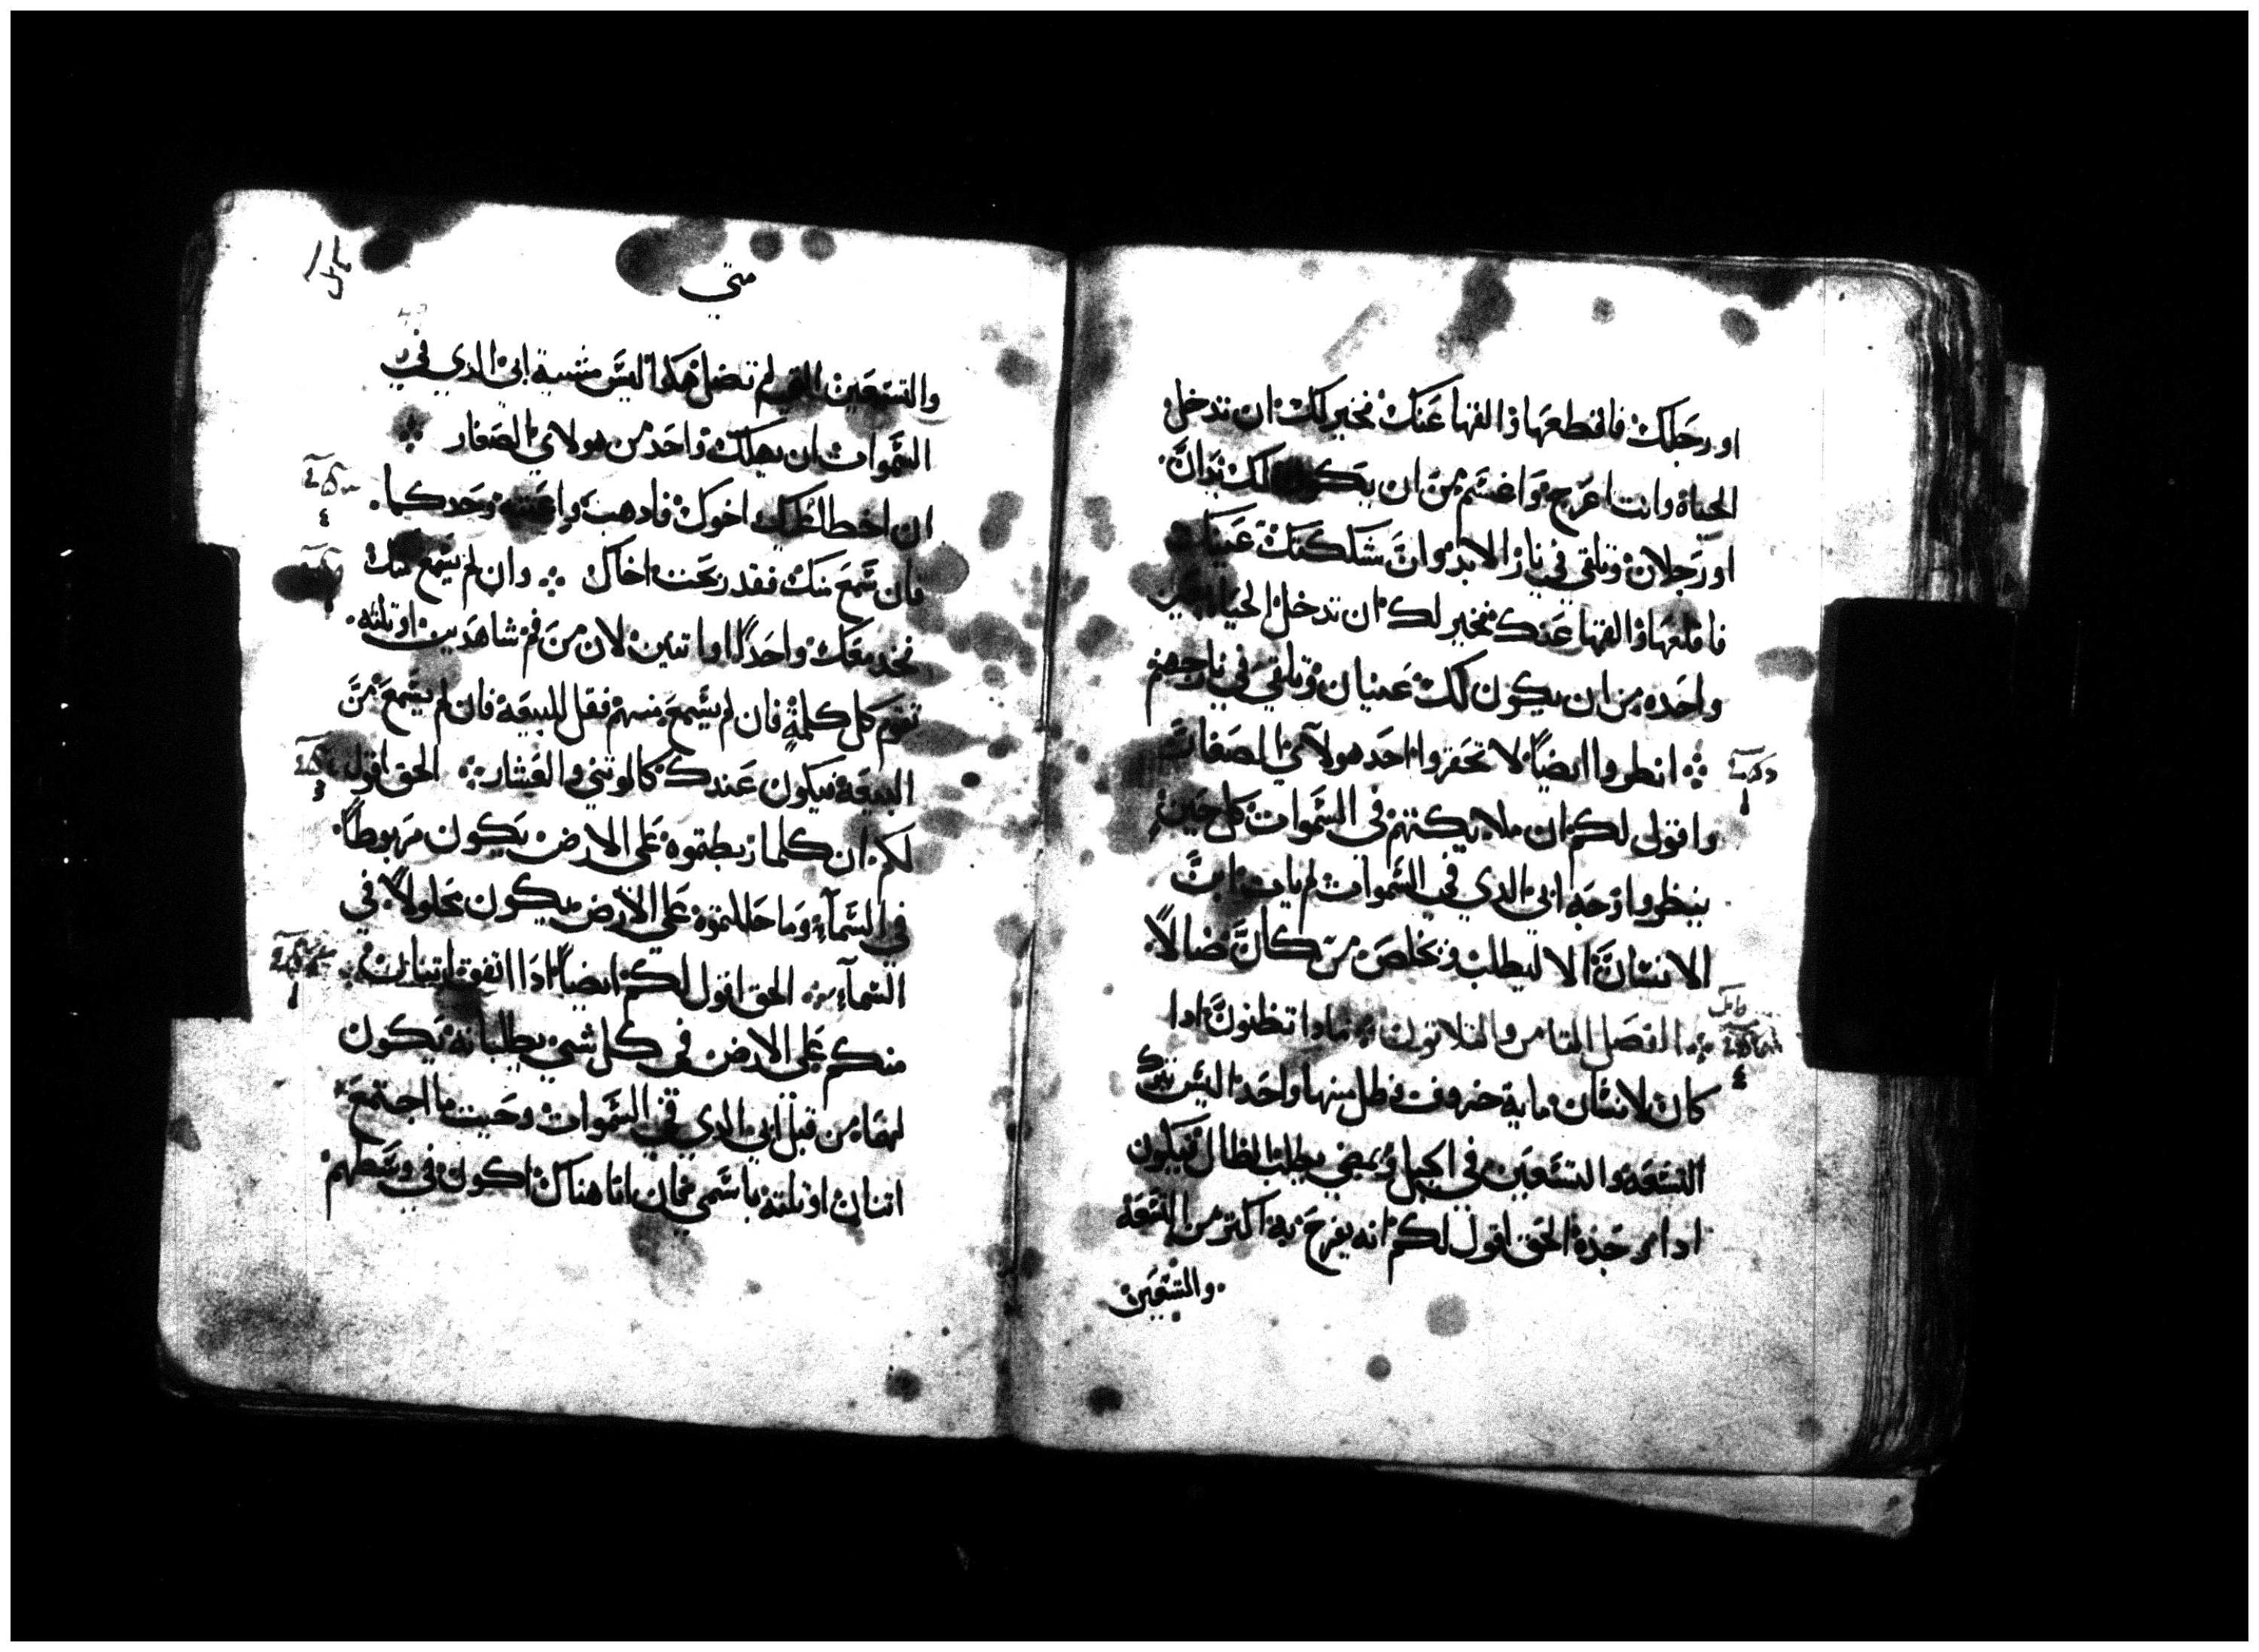 او رجلك فاقطعها والقها عنك فخير لك ان تدخل
الحياة وانت اعرج واعسم من ان يكون لك يدان
او رجلان وتلقى في نار الابد وان شككتك عينك
فاقلعها والقها عنك فخير لك ان تدخل الحياة بعين
واحده من ان يكون لك عينان وتلقى في نار جهنم
انظروا ايضاً لا تحقروا احد هولآي الصغار
واقول لكم ان ملايكتهم في السموات كل حين
ينظروا وجه ابي الدي في السموات لم يات ابن
الانسان الا ليطلب ويخلص من كان ضالاً
الفصل التامن والتلاتون مادا تظنون ادا
كان لانسان ماية خروف فضل منها واحد اليس يترك
التسعه والتسعين في الجبل ويمضي يطلب الظال فيكون
ادا وجده الحق اقول لكم انه يفرح به اكتر من التسعه
والتسعين
متي
والتسعين التي لم تضل هكدا ليس مشيية ابي الدي في
السموات ان يهلك واحد من هولاي الصغار
ان اخطا اليك اخوك فادهب واعتبه وحدكما
فان سمع منك فقد ربحت اخاك وان لم يسمع منك
فخد معك واحداً او اتنين لان من فم شاهدين او تلته
تقوم كل كلمة فان لم يسمع منهم فقل للبيعة فان لم يسمع من
البيعة فيكون عندك كالوتني والعشار الحق اقول
لكم ان كلما ربطتموه على الارض يكون مربوطاً
في السمآء وما حللتموه على الارض يكون محلولاً في
السمآء الحق اقول لكم ايضاً ادا اتفق اتنان
منكم على الارض في كل شي يطلبانه يكون
لهما من قبل ابي الدي في السموات وحيت ما اجتمع
اتنان او تلتة باسمي فان انا هناك اكون في وسطهم